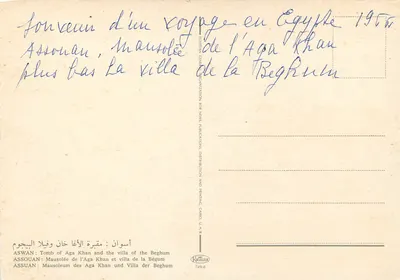 Souvenir d'un voyage en Egypte
Assouan, Mausolée de l'Aga Khan
plus bas la villa de la Beghum
أسوان : مقبرة الأغا خان وفيلا البيجوم
ASWAN : Tomb of Aga Khan and the villa of the Beghum
ASSOUAN : Mausolée de l'Aga Khan et villa de la Bégum
ASSUAN : Mausoleum des Aga Khan und Villa der Beghum